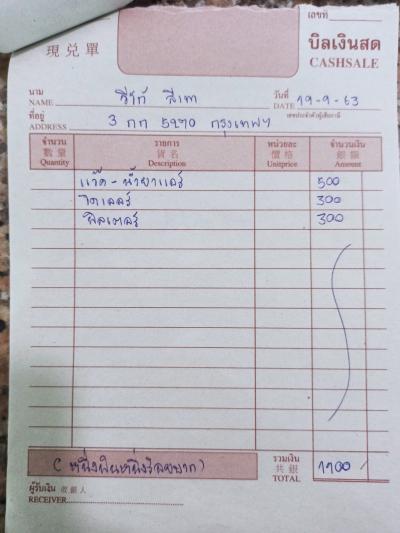 เลขที่
現兌單
บิลเงินสด
CASHSALE
นาม
NAME
สีเทา
วันที่
DATE 19-9-63
ที่อยู่
ADDRESS
3 กก 5270 กรุงเทพฯ
เลขประจำตัวผู้เสียภาษี
จำนวน 數量 Quantity
รายการ 貨名 Description
หน่วยละ 價格 Unitprice
จำนวนเงิน 銀額 Amount
แว๊ค - น้ำยาแอร์ 500
ไดเออร์ 300
ฟิลเตอร์ 300
(หนึ่งพันหนึ่งร้อยบาท)
รวมเงิน
共銀
TOTAL 1100
ผู้รับเงิน 收銀人
RECEIVER